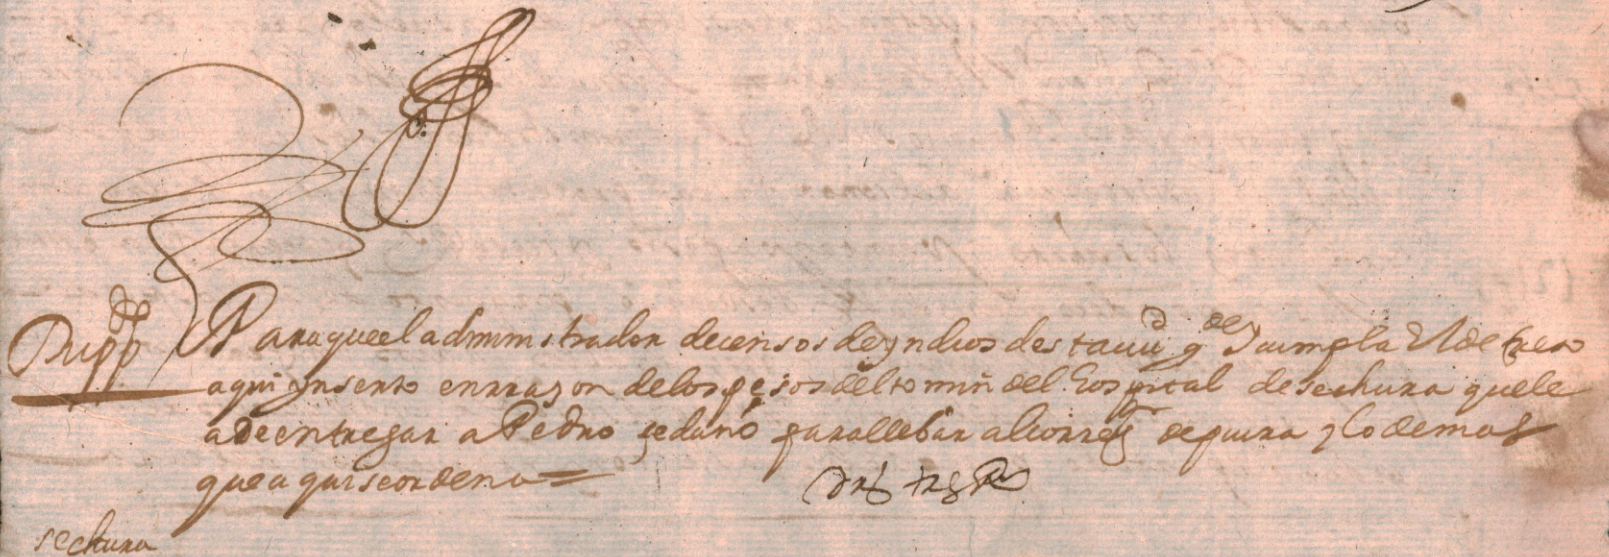 Para que el administrador de censos de yndios desta ciud g de y cumpla el decreto
aqui ynserto en rrazon de los pesos del tomin del hospital de sechura que le
a de entregar a Pedro sedano para llebar al corregor de piura y lo demas
que aqui se ordena =
sechura